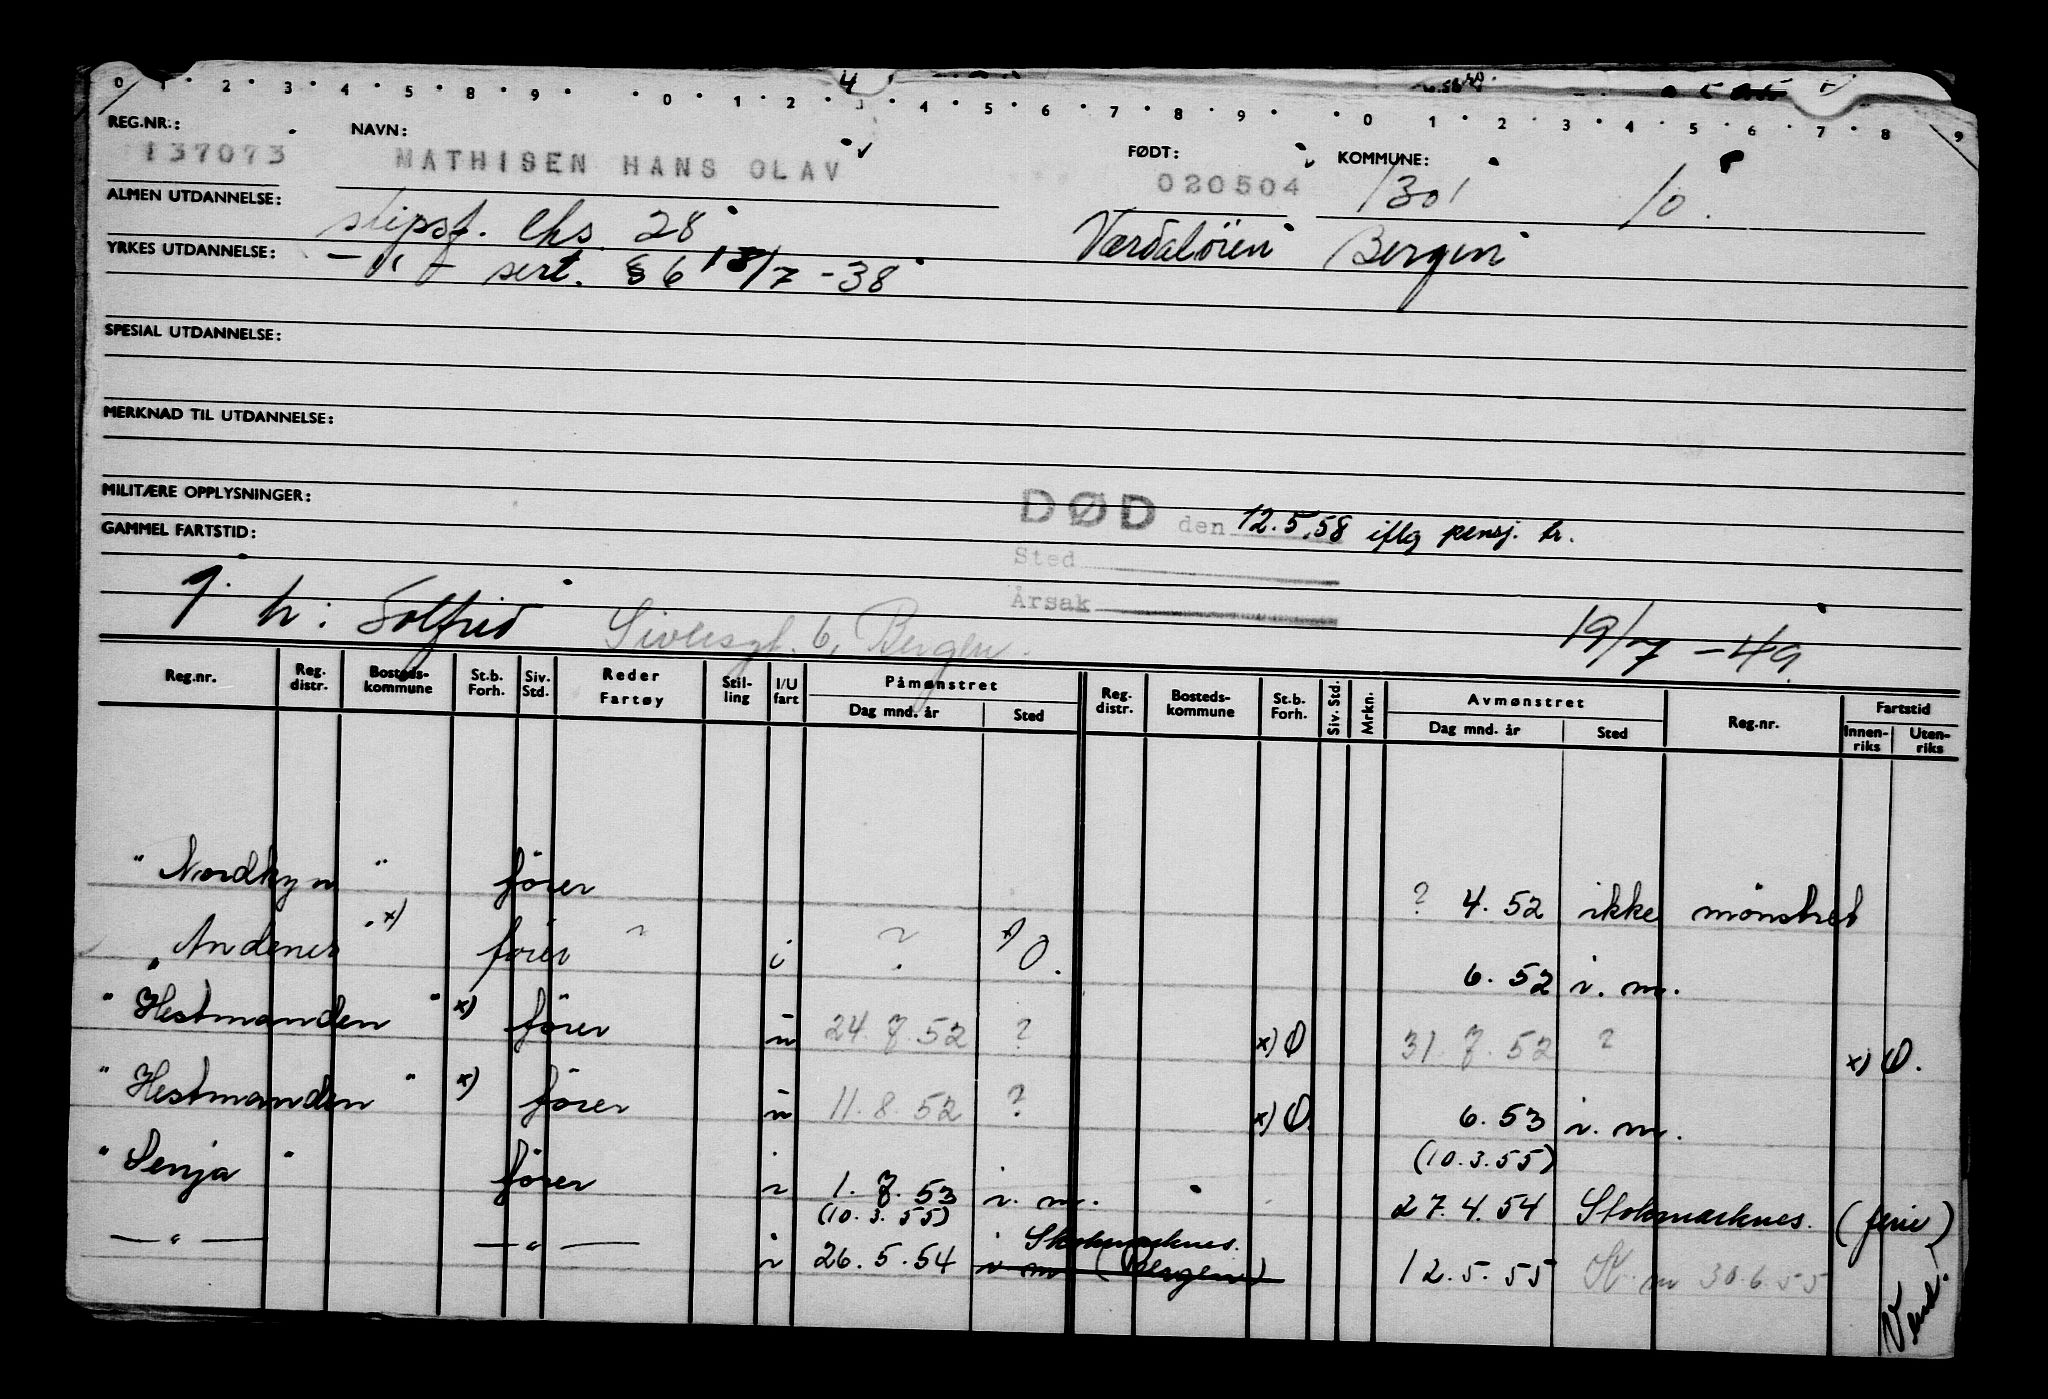 0 1 2 3 4 5 8 9 0 1 2 3 4 5 6 7 8 9 0 1 2 3 4 5 6 7 8 9
REG.NR.: NAVN: FØDT: KOMMUNE:
137073 MATHISEN HANS OLAV 020504 1301 10.
ALMEN UTDANNELSE: stipsf. eks. 28 Værdalöien Bergen
YRKES UTDANNELSE: — " — sert. § 6 18/7 - 38
SPESIAL UTDANNELSE:
MERKNAD TIL UTDANNELSE:
MILITÆRE OPPLYSNINGER:
DØD den 12.5.58 iflg pensj. tr.
GAMMEL FARTSTID:
Sted
Årsak
g. h: Solfrid Sivlesgt. 6, Bergen. 19/7 - 49.
Reg.nr. Reg. distr. Bosteds-kommune St.b. Forh. Siv. Std. Reder Fartøy Stil-ling I/U fart Påmønstret Dag mnd. år Sted Reg. distr. Bosteds-kommune St.b. Forh. Siv. Std. Mrkn. Avmønstret Dag mnd. år Sted Reg.nr. Fartstid Innen-riks Uten-riks
" Nordkyn " fører ? 4. 52 ikke mønstret
" Andenes " x) fører ? i ? x) O. 6. 52 i. m.
" Hestmanden " x) fører u 24. 7. 52 ? x) O 31. 7. 52 ? x) O.
" Hestmanden " x) fører u 11. 8. 52 ? x) O. 6. 53 i. m.
(10. 3. 55)
" Senja " fører i 1. 7. 53 i. m. 27. 4. 54 Stokmarknes. (ferie)
(10. 3. 55)
Stokmarknes.
— " — — " — i 26. 5. 54 i m (Bergen) 12. 5. 55 St. m 30.6.55
Vend.